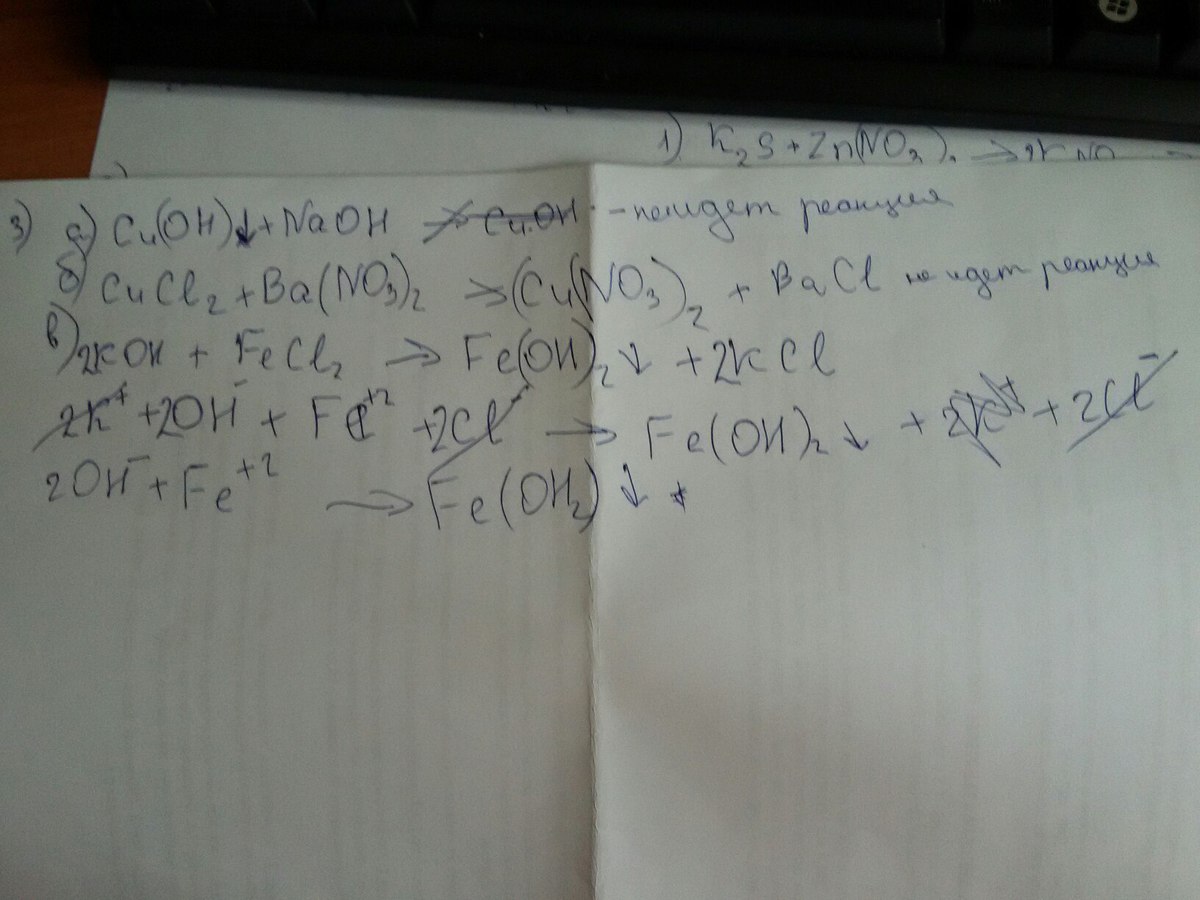 1) K₂S + Zn(NO₃)₂ → 2KNO
3) а) Cu(OH)↓ + NaOH → CuOH - не идет реакция
б) CuCl₂ + Ba(NO₃)₂ → (Cu(NO₃)₂ + BaCl не идет реакция
в) 2KOH + FeCl₂ → Fe(OH)₂↓ + 2KCl
2K⁺ + 2OH⁻ + Fe⁺² + 2Cl⁻ → Fe(OH)₂↓ + 2K⁺ + 2Cl⁻
2OH⁻ + Fe⁺² → Fe(OH₂)↓ +